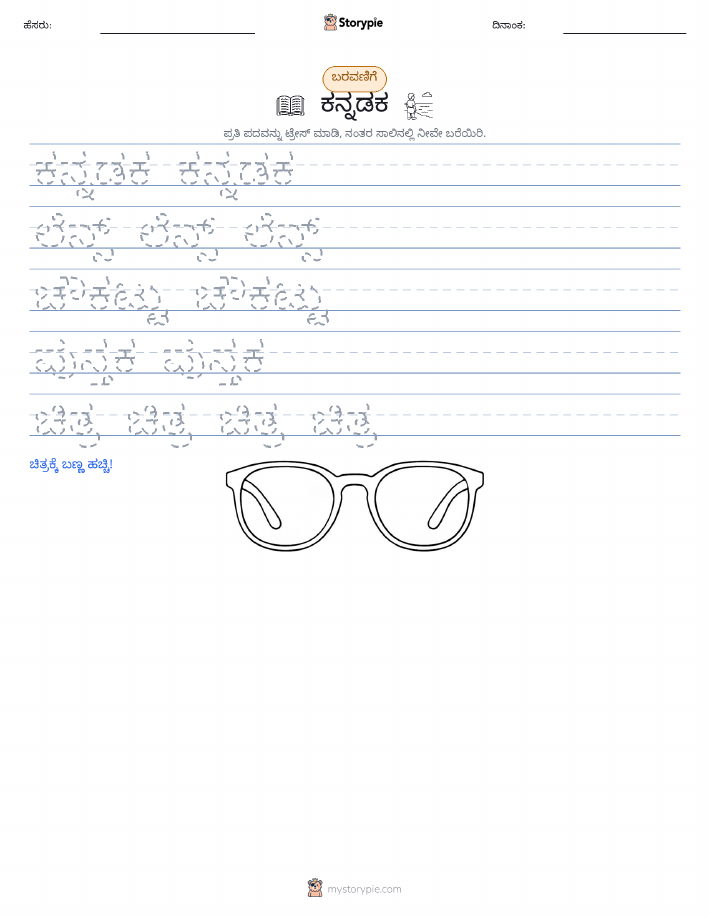 ಹೆಸರು:
Storypie
ದಿನಾಂಕ:
ಬರವಣಿಗೆ
ಕನ್ನಡಕ
ಪ್ರತಿ ಪದವನ್ನು ಟ್ರೇಸ್ ಮಾಡಿ, ನಂತರ ಸಾಲಿನಲ್ಲಿ ನೀವೇ ಬರೆಯಿರಿ.
ಕನ್ನಡಕ ಕನ್ನಡಕ
ಲೆನ್ಸ್ ಲೆನ್ಸ್ ಲೆನ್ಸ್
ಚೌಕಟ್ಟು ಚೌಕಟ್ಟು
ಪುಸ್ತಕ ಪುಸ್ತಕ
ಚಿತ್ರ ಚಿತ್ರ ಚಿತ್ರ ಚಿತ್ರ
ಚಿತ್ರಕ್ಕೆ ಬಣ್ಣ ಹಚ್ಚಿ!
mystorypie.com